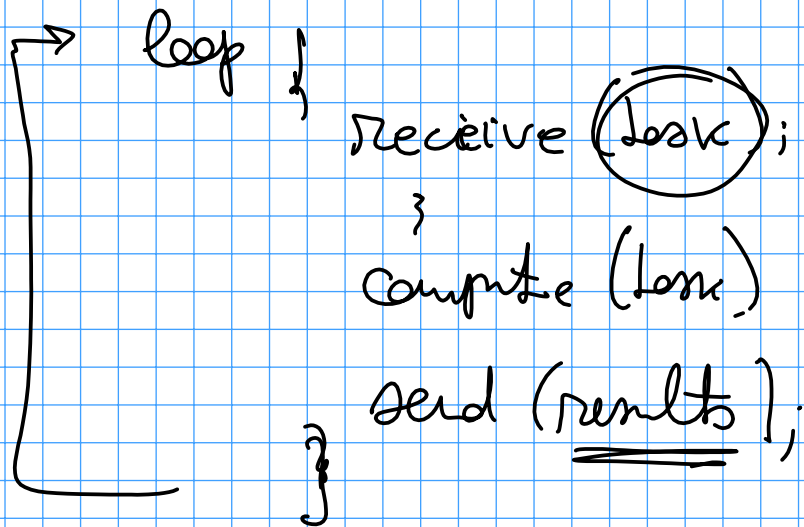 loop {
receive (task);
}
compute (task)
send (results);
}